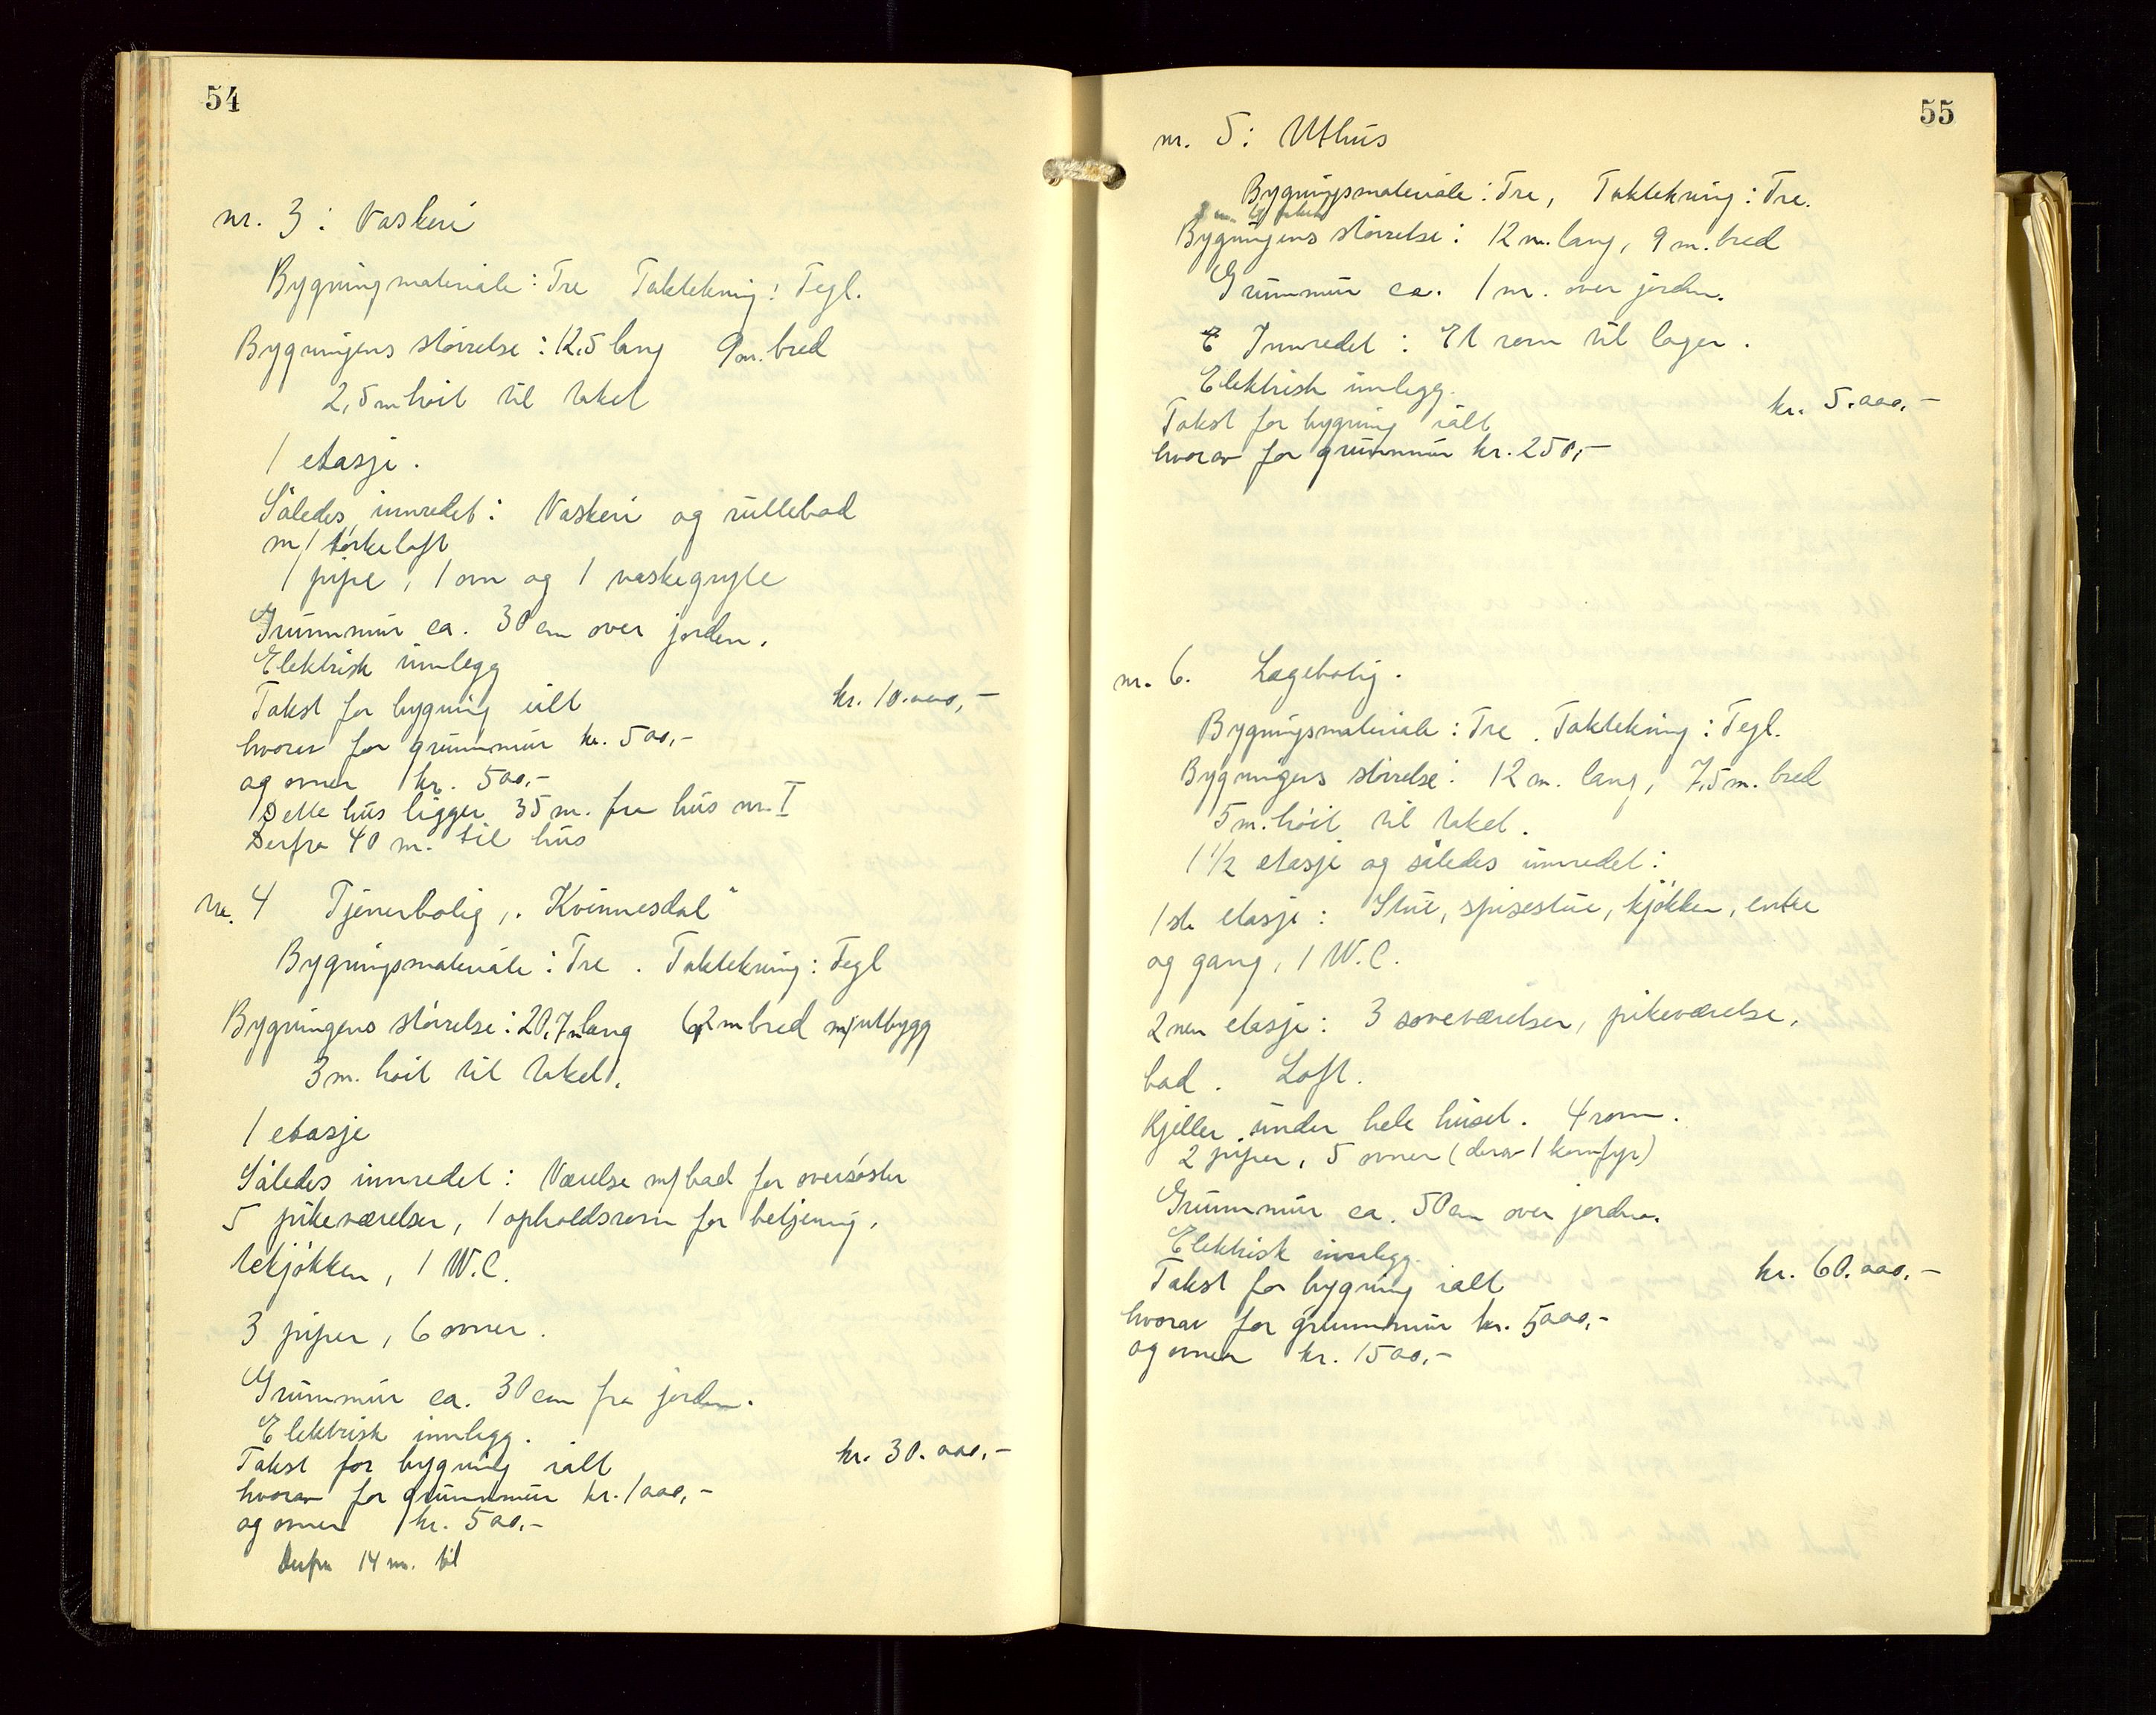 54
nr. 3 : Vaskeri
Bygningmateriale : Tre Taktekning : Tegl.
Bygningens størrelse : 12,5 lang 9 m. bred
2,5 m høit til taket
1 etasje .
Således innredet : Vaskeri og rullebod
m/ tørkeloft
1 pipe , 1 ovn og 1 vaskegryte
Grunnmur ca. 30 cm over jorden .
Elektrisk innlegg
Takst for bygning ialt kr. 10.000,-
hvorav for grunnmur kr. 500,-
og ovner kr. 500,-
Dette hus ligger 35 m. fra hus nr. I
Derfra 40 m. til hus
nr. 4 Tjenerbolig ,, Kvinnesdal "
Bygningsmateriale : Tre . Taktekning : Tegl
Bygningens størrelse : 20,7 m lang 6,2 m bred m/ utbygg
3 m. høit til taket .
1 etasje
Således innredet : Værelse m/ bad for oversøster
5 pikeværelser , 1 opholdsrom for betjening ,
tekjøkken , 1 W.C.
3 piper , 6 ovner .
Grunnmur ca. 30 cm fra jorden .
Elektrisk innlegg .
Takst for bygning ialt kr. 30.000,-
hvorav for grunnmur kr. 1000,-
og ovner kr. 500,-
Derfra 14 m. til
55
nr. 5 : Uthus
Bygningsmateriale : Tre , Taktekning : Tre .
Bygningens størrelse : 12 m. lang , 9 m. bred
Grunnmur ca. 1 m. over jorden .
E Innredet : Et rom til lager .
Elektrisk innlegg .
Takst for bygning ialt kr. 5.000,-
hvorav for grunnmur kr. 250,-
nr. 6. Lægebolig .
Bygningsmateriale : Tre . Taktekning : Tegl.
Bygningens størrelse : 12 m. lang , 7,5 m. bred
5 m. høit til taket .
1 1/2 etasje og således innredet :
1 ste etasje : Stue , spisestue , kjøkken , entre
og gang , 1 W.C.
2 nen etasje : 3 soveværelser , pikeværelse ,
bad . Loft .
Kjeller under hele huset . 4 rom .
2 piper , 5 ovner ( derav 1 komfyr )
Grunnmur ca. 50 cm over jorden .
Elektrisk innlegg .
Takst for bygning ialt kr. 60.000,-
hvorav for grunnmur kr. 5000,-
og ovner kr. 1500,-